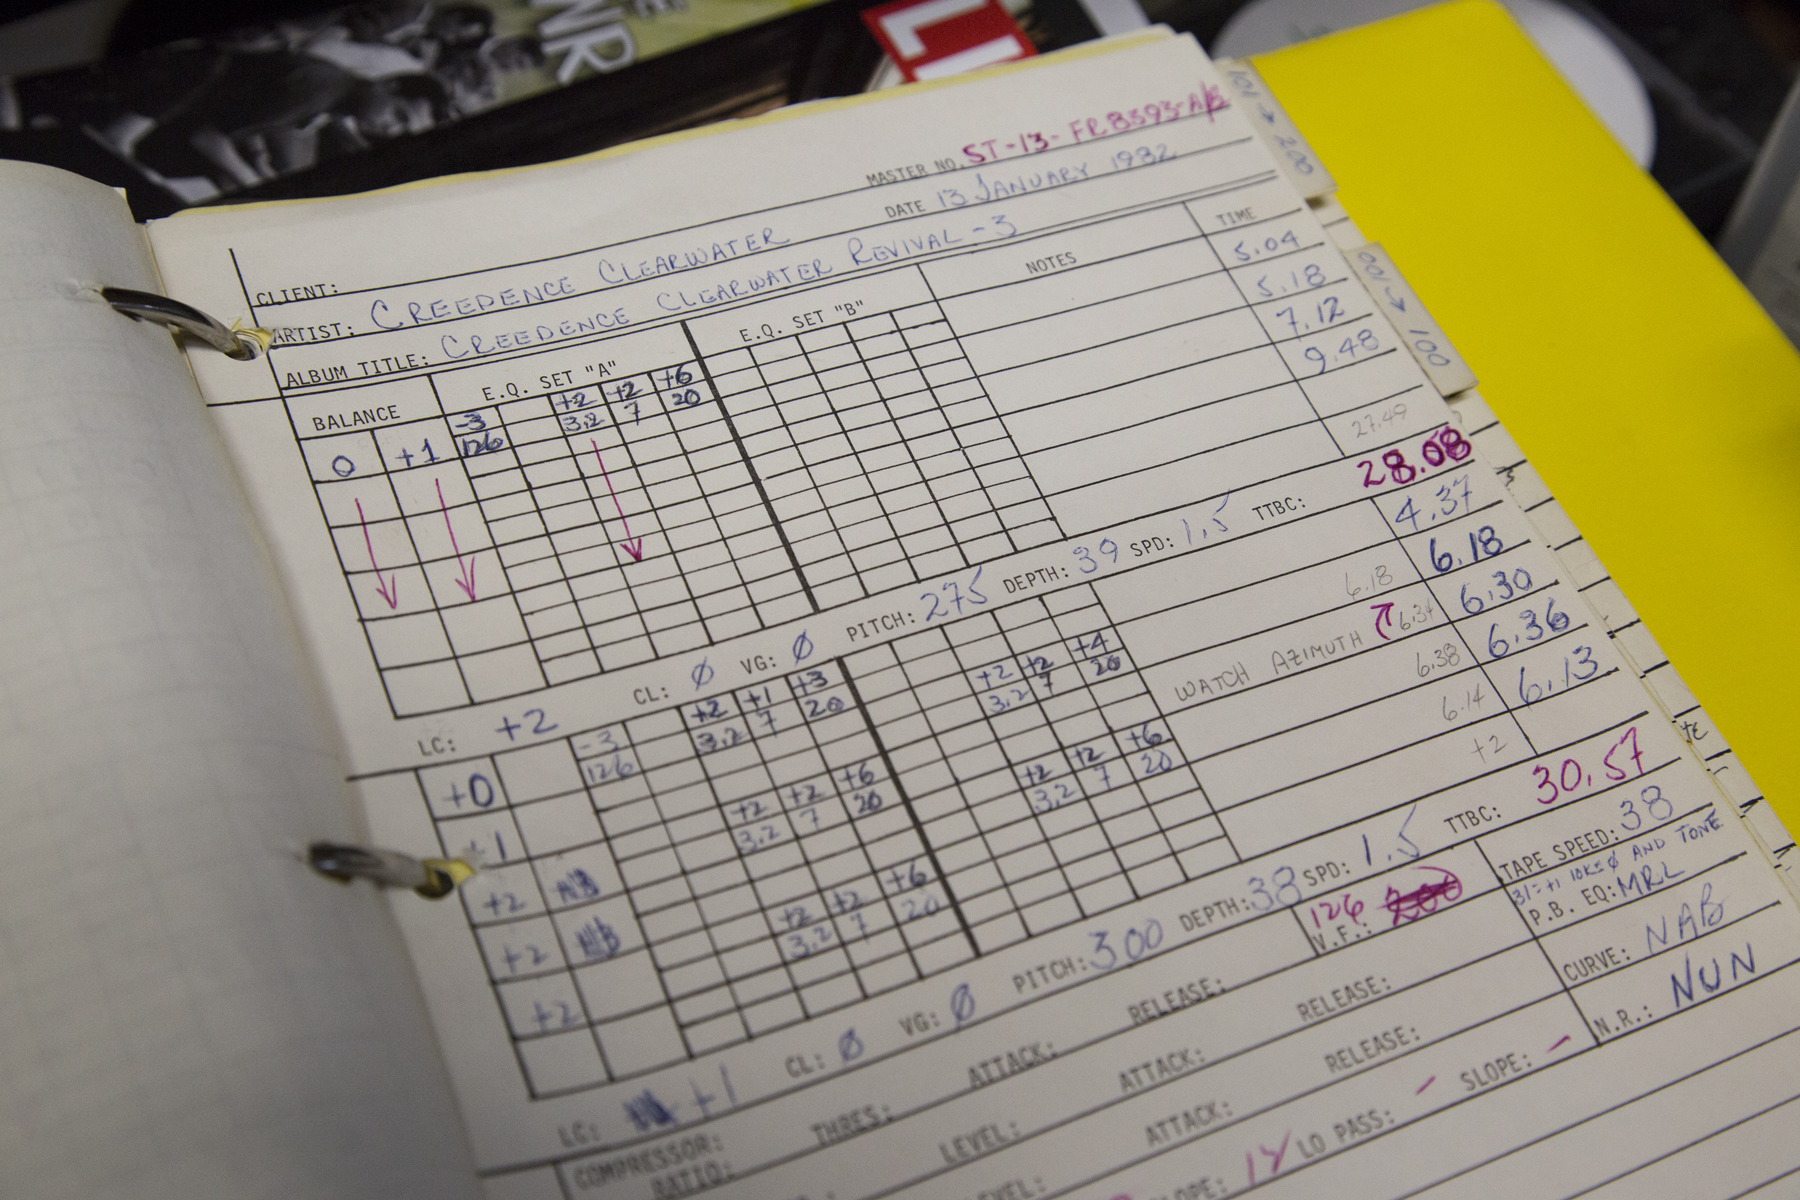 NR
LI
101 → 200
001 → 100
MASTER NO. ST-13-FR8393-A/B
DATE 13 JANUARY 1982
CLIENT:
ARTIST: CREEDENCE CLEARWATER
ALBUM TITLE: CREEDENCE CLEARWATER REVIVAL - 3
BALANCE E.Q. SET "A" E.Q. SET "B" NOTES TIME
-3 +2 +2 +6
0 +1 126 3.2 7 20
5.04
5.18
7.12
9.48
27.49
LC: +2 CL: Ø VG: Ø PITCH: 275 DEPTH: 39 SPD: 1.5 TTBC: 28.08
-3 +2 +1 +3 +2 +2 +4
+0 126 3.2 7 20 3.2 7 20
4.37
+1 +2 +2 +6 +2 +2 +6
3.2 7 20 3.2 7 20
6.18 6.18
+2
WATCH AZIMUTH 6.34 6.30
+2 +2 +2 +6
3.2 7 20
6.38 6.36
+2
6.14 6.13
+2
LC: +1 CL: Ø VG: Ø PITCH: 300 DEPTH: 38 SPD: 1.5 TTBC: 30.57
COMPRESSOR: THRES: ATTACK: RELEASE: V.F.: 126
TAPE SPEED: 38
31=+1 10K=Ø AND TONE
P.B. EQ: MRL
RATIO: LEVEL: ATTACK: RELEASE:
CURVE: NAB
LEVEL: ATTACK: RELEASE:
N.R.: NUN
SLOPE: LO PASS: - SLOPE: -